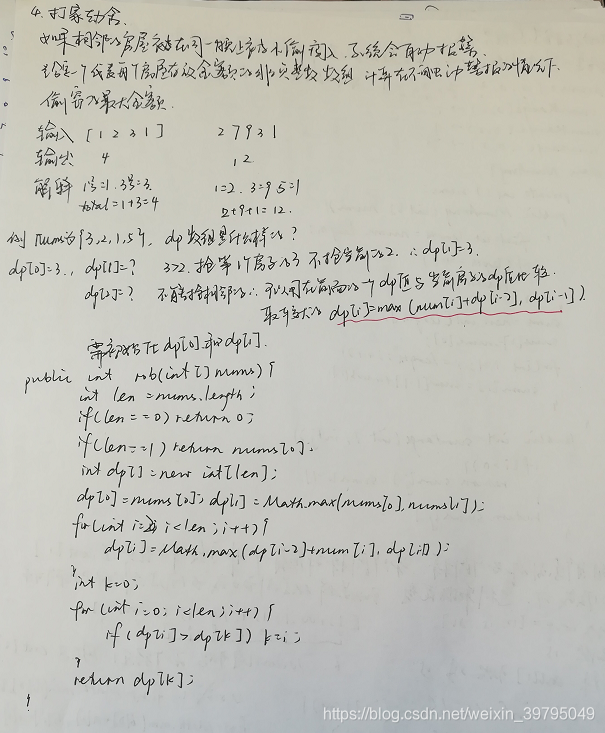 4. 打家劫舍
如果相邻的房屋在同一晚上被小偷闯入,系统会自动报警.
给定一个代表每个房屋存放金额的非负整数数组 计算在不触动警报的情况下
偷窃的最大金额.
输入 [1 2 3 1] 2 7 9 3 1
输出 4 12
解释 1号=1. 3号=3. 1=2. 3=9 5=1
total=1+3=4 2+9+1=12.
例 nums为{3,2,1,5}, dp数组是什么样的?
dp[0]=3., dp[1]=? 3>2. 抢第1个房子的3 不抢当前的2. ∴dp[1]=3.
dp[2]=? 不能抢相邻的∴ 可以用在前面的一个dp值与当前房子的dp值比较.
取较大的 dp[i]=max(num[i]+dp[i-2], dp[i-1])
需初始化dp[0].和dp[1].
public int rob(int[] nums) {
int len=nums.length;
if(len==0) return 0;
if(len==1) return nums[0];
int dp[]=new int[len];
dp[0]=nums[0]; dp[1]=Math.max(nums[0],nums[1]);
for(int i=2; i<len; i++){
dp[i]=Math.max(dp[i-2]+num[i], dp[i-1]);
}
int k=0;
for(int i=0; i<len; i++) {
if(dp[i]>dp[k]) k=i;
}
return dp[k];
}
https://blog.csdn.net/weixin_39795049